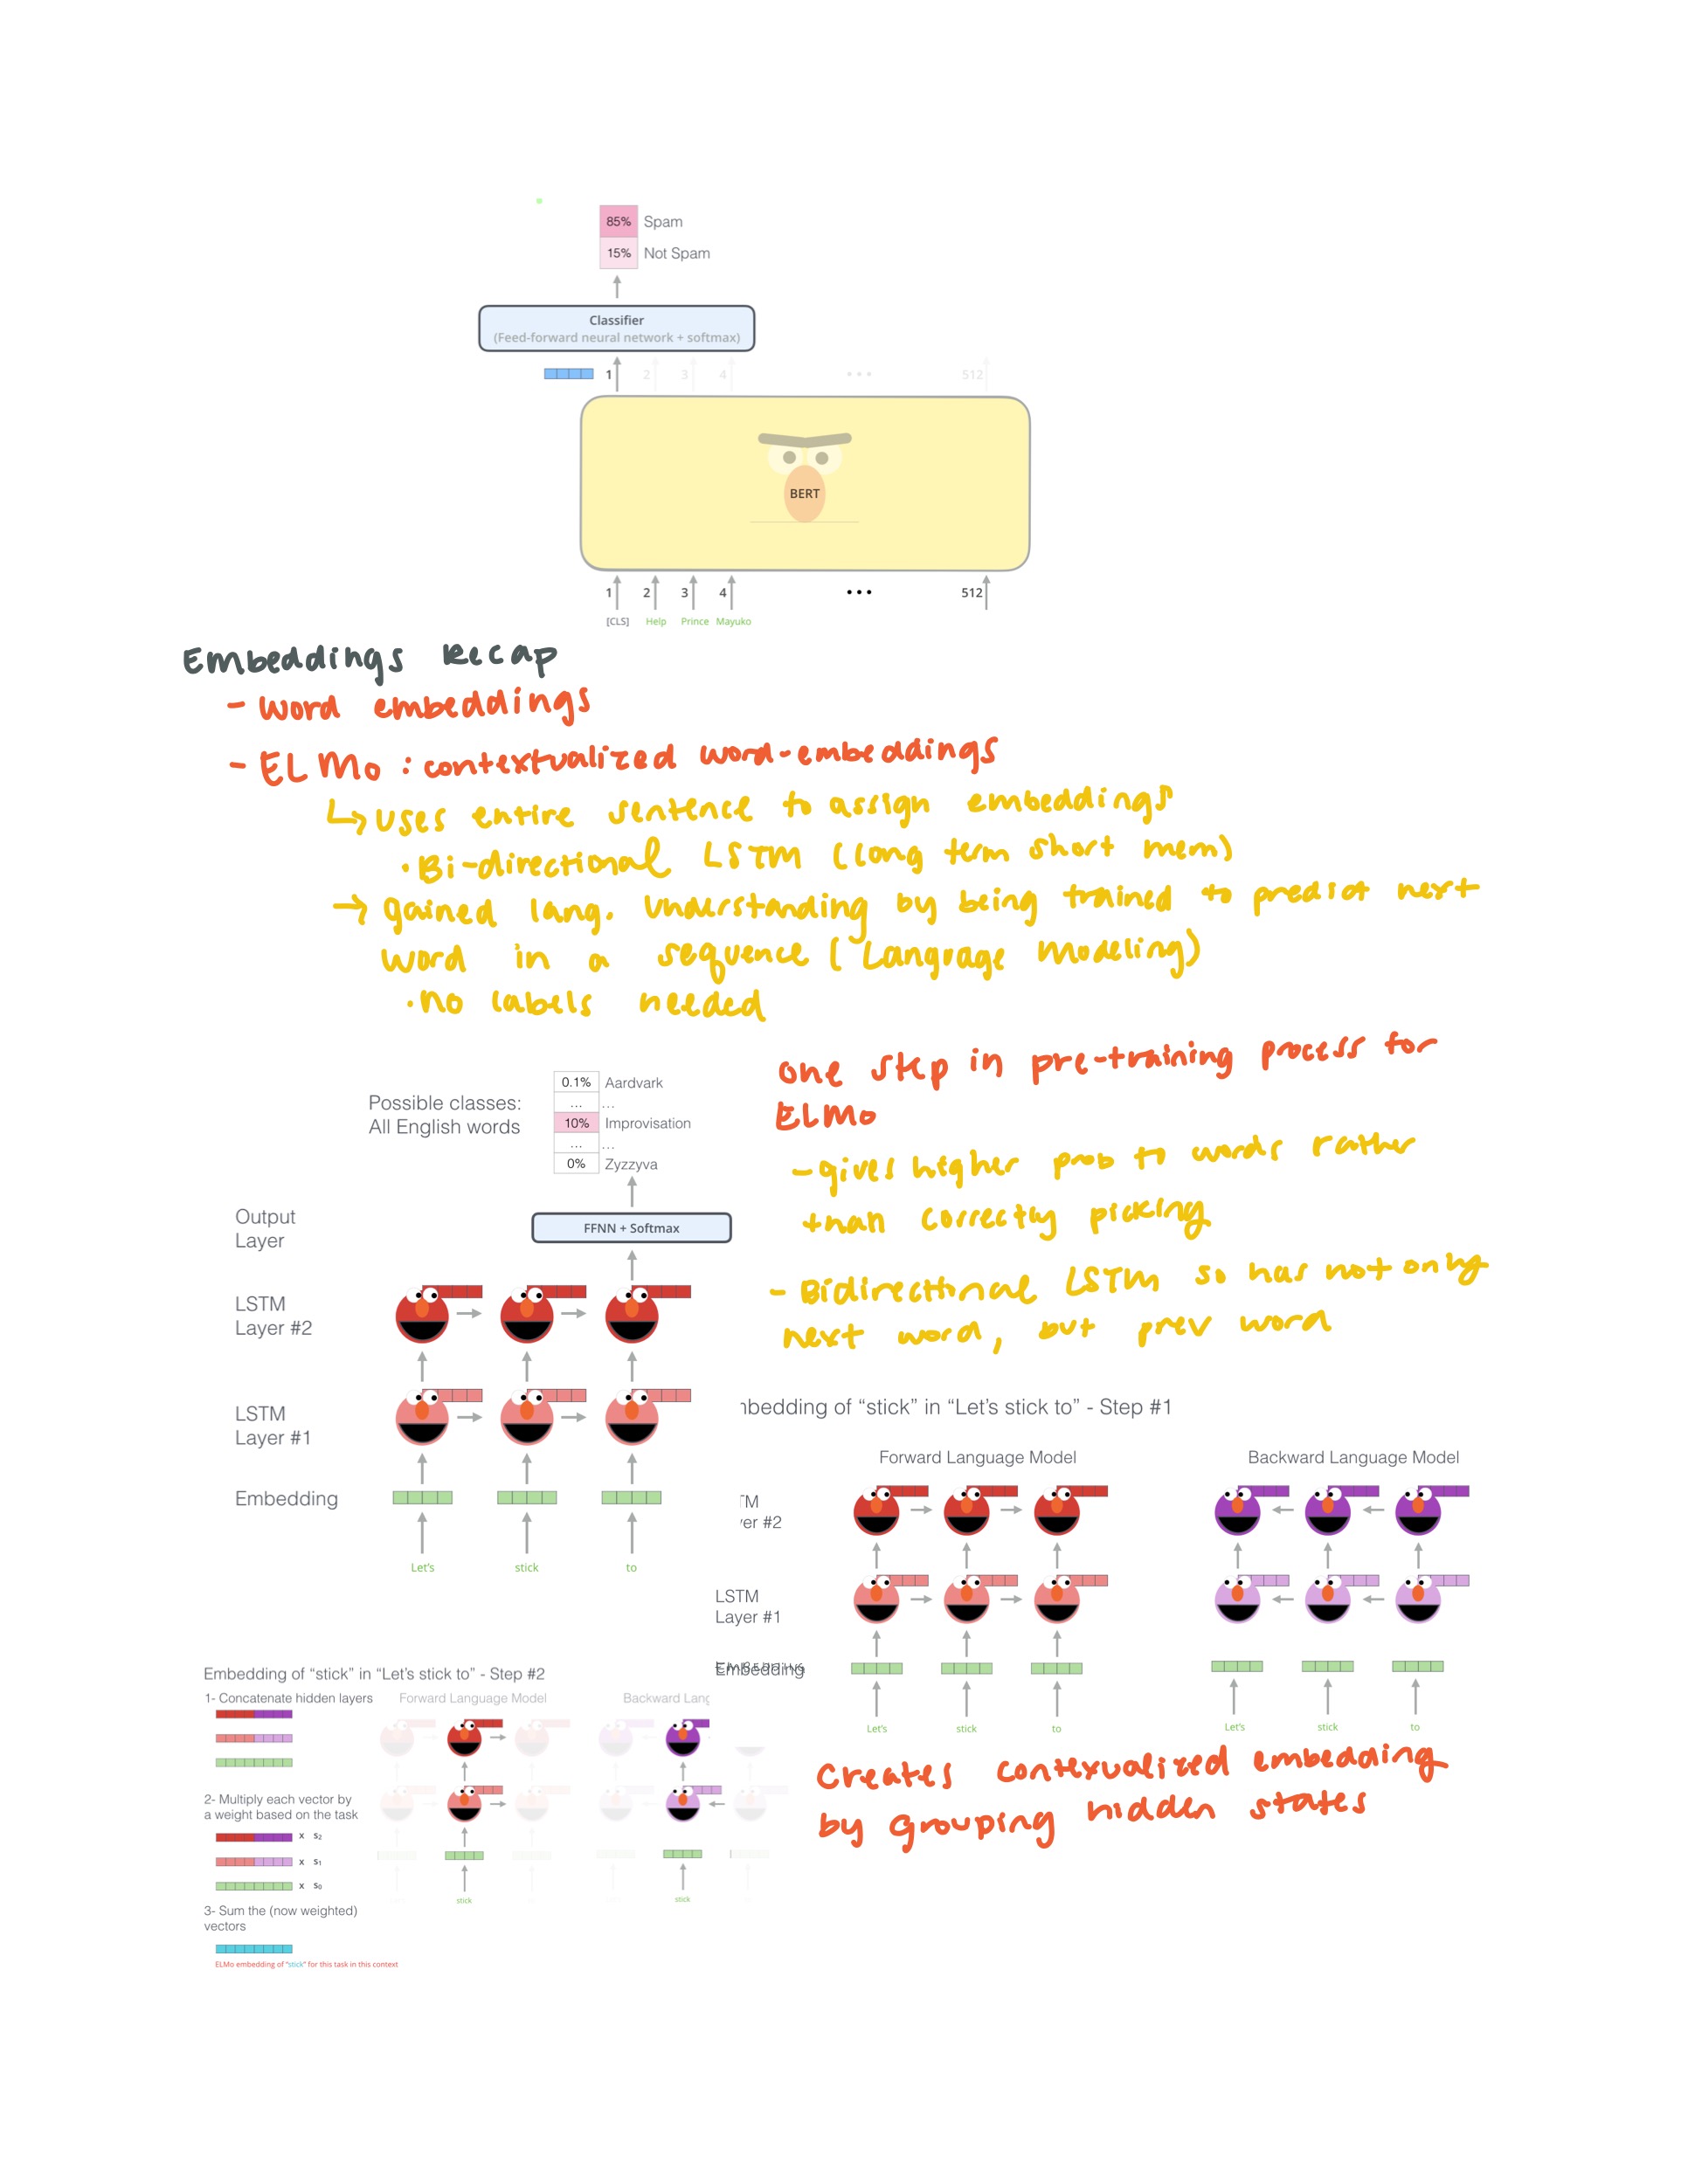 85% Spam
15% Not Spam
Classifier
(Feed-forward neural network + softmax)
1 2 3 4 ••• 512
BERT
1 2 3 4 ••• 512
[CLS] Help Prince Mayuko
Embeddings Recap
- word embeddings
- ELMo : contextualized word-embeddings
↳ uses entire sentence to assign embeddings
· Bi-directional LSTM (long term short mem)
→ gained lang. understanding by being trained to predict next
word in a sequence (Language Modeling)
· no labels needed
Possible classes:
All English words
0.1% Aardvark
... ...
10% Improvisation
... ...
0% Zyzzyva
Output
Layer
FFNN + Softmax
LSTM
Layer #2
LSTM
Layer #1
Embedding
Let's stick to
one step in pre-training process for
ELMo
- gives higher prob to words rather
than correctly picking
- Bidirectional LSTM so has not only
next word, but prev word
nbedding of “stick” in “Let's stick to” - Step #1
Forward Language Model Backward Language Model
TM
yer #2
LSTM
Layer #1
Embedding
Let's stick to Let's stick to
Creates contexualized embedding
by grouping hidden states
Embedding of “stick” in “Let's stick to” - Step #2
1- Concatenate hidden layers
Forward Language Model Backward Lang
2- Multiply each vector by
a weight based on the task
x s₂
x s₁
x s₀
stick stick
3- Sum the (now weighted)
vectors
ELMo embedding of “stick” for this task in this context